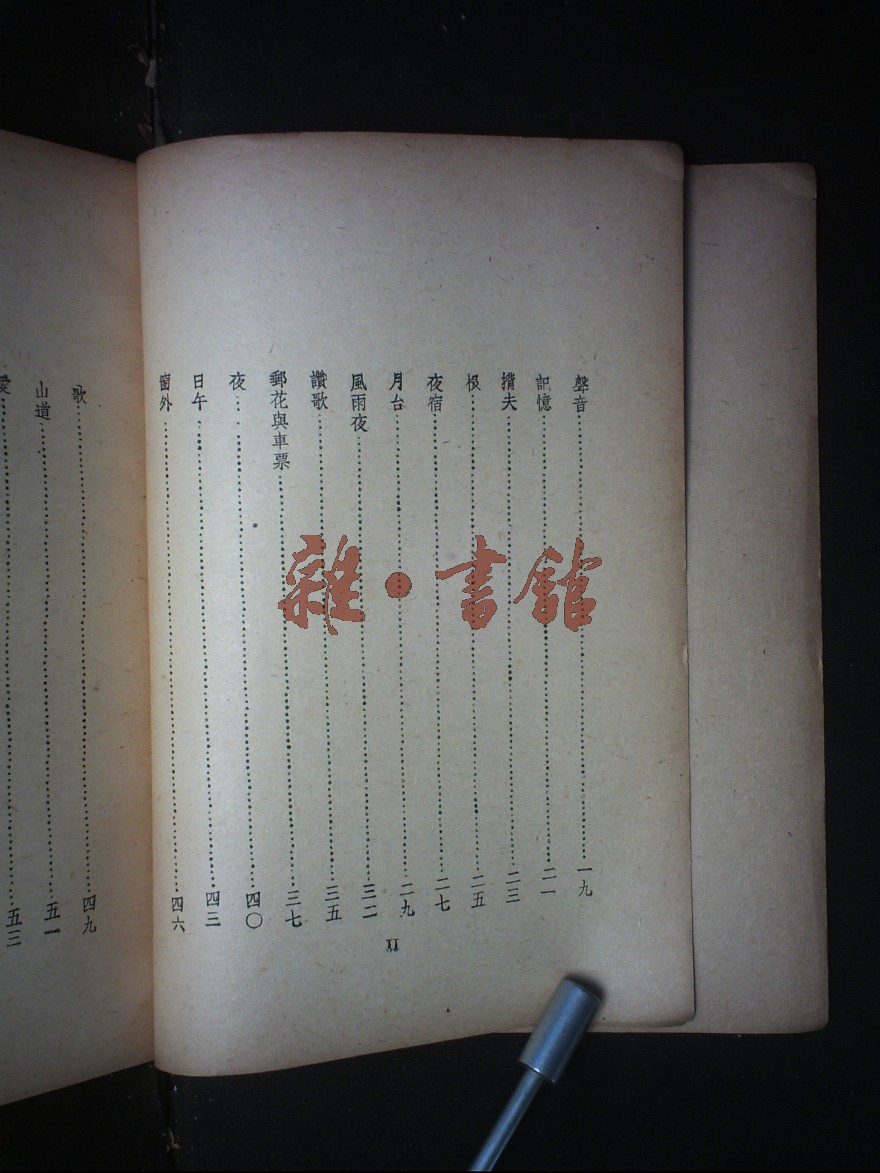 聲音……一九
記憶……二一
揹夫……二三
根……二五
夜宿……二七
月台……二九
風雨夜……三二
讚歌……三五
郵花與車票……三七
夜……四〇
日午……四三
窗外……四六
II
歌……四九
山道……五一
愛……五三
雜·書館